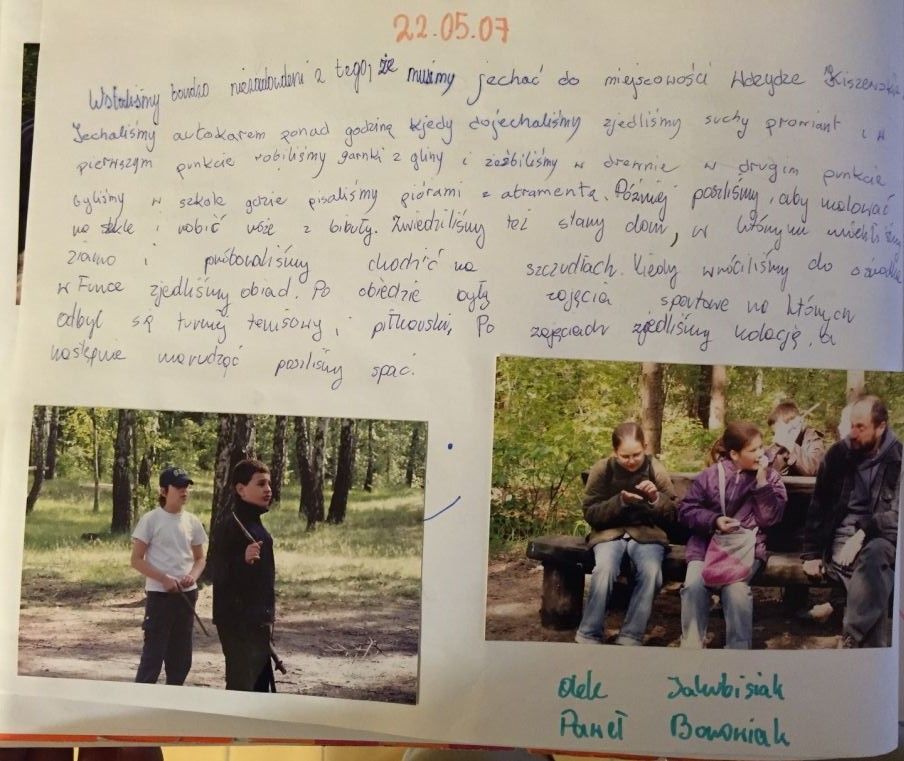 22.05.07
Wstaliśmy bardzo niezadowoleni z tego, że musimy jechać do miejscowości Wdzydze Kiszewskie.
Jechaliśmy autokarem ponad godzinę kiedy dojechaliśmy zjedliśmy suchy prowiant i w
pierwszym punkcie robiliśmy garnki z gliny i w drewnie w drugim punkcie
byliśmy w szkole gdzie pisaliśmy piórami z atramentu. Później poszliśmy, aby malować
na szkle i robić róże z bibuły. Zwiedziliśmy też stary dom, w którym
ziarno i próbowaliśmy chodzić na szczudłach. Kiedy wróciliśmy do ośrodka
w Funce zjedliśmy obiad. Po obiedzie były zajęcia sportowe na których
odbył są turniej tenisowy i piłkarski, Po zajęciach zjedliśmy kolację, a
następnie marudząć poszliśmy spać.
Olek Jakubisiak
Paweł